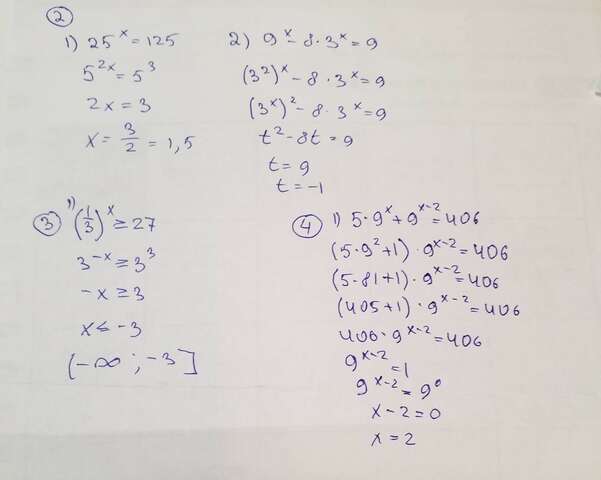 ②
1) 25^x = 125
5^2x = 5^3
2x = 3
x = 3/2 = 1,5
2) 9^x - 8 · 3^x = 9
(3^2)^x - 8 · 3^x = 9
(3^x)^2 - 8 · 3^x = 9
t^2 - 8t = 9
t = 9
t = -1
③ 1) (1/3)^x ≥ 27
3^-x ≥ 3^3
-x ≥ 3
x ≤ -3
(-∞ ; -3]
④ 1) 5 · 9^x + 9^x-2 = 406
(5 · 9^2 + 1) · 9^x-2 = 406
(5 · 81 + 1) · 9^x-2 = 406
(405 + 1) · 9^x-2 = 406
406 · 9^x-2 = 406
9^x-2 = 1
9^x-2 = 9^0
x - 2 = 0
x = 2